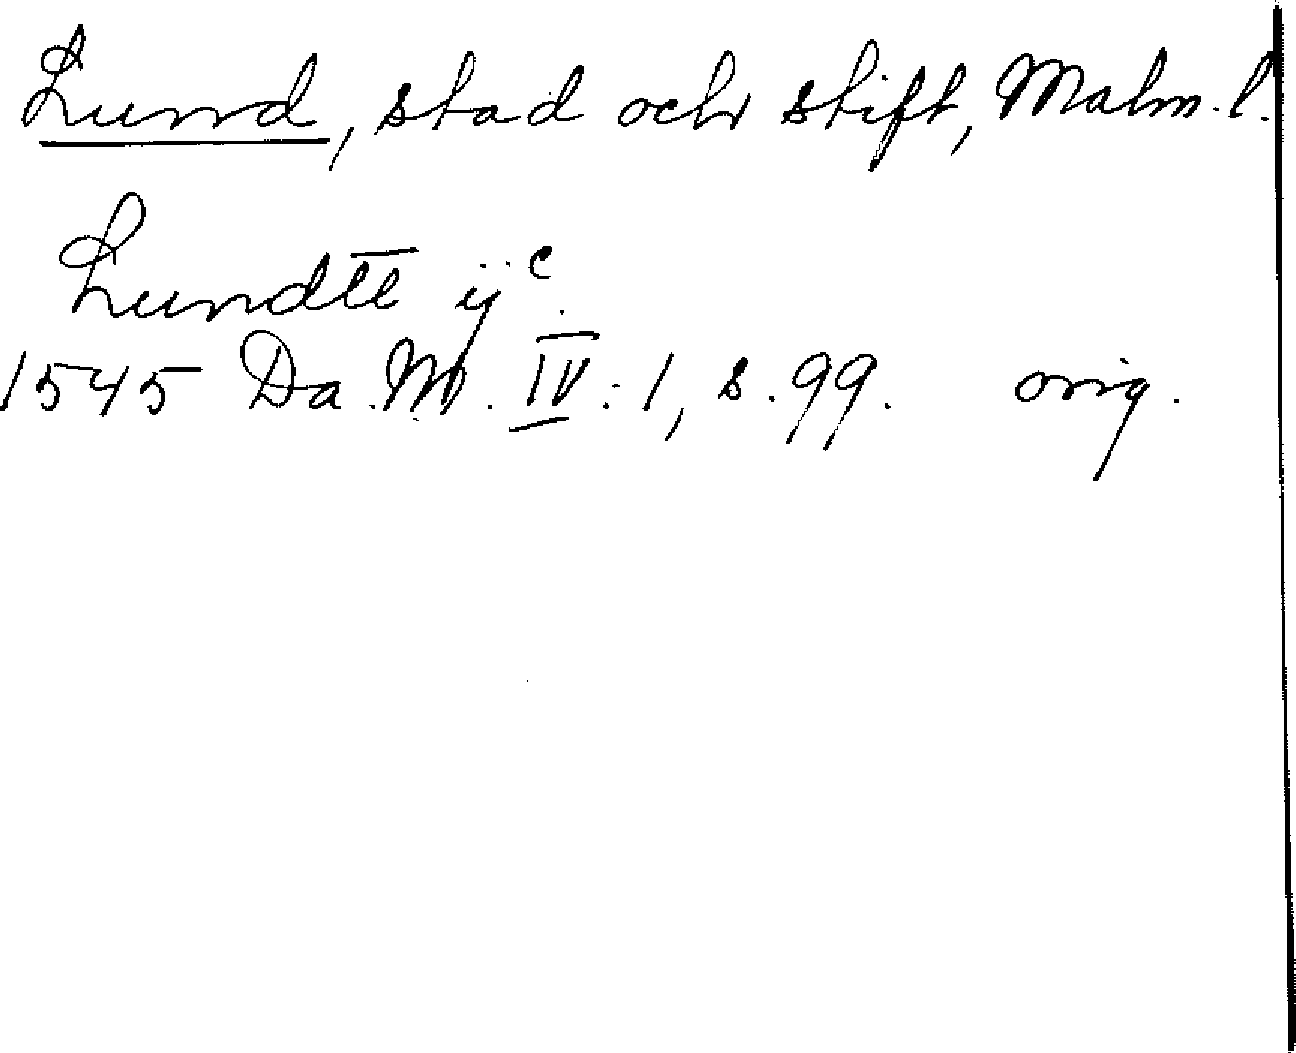 Lund, stad och stift, Malm. l.
Lundtt ijᶜ.
1545 Da. M. IV: 1, s. 99. orig.